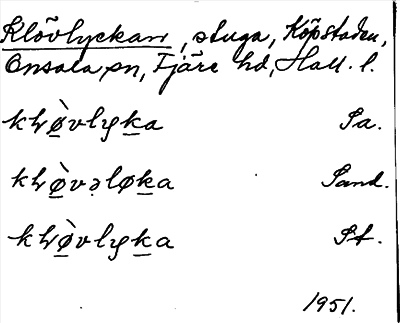 Klövlyckan, stuga, Köpstaden,
Onsala sn, Fjäre hd, Hall. l.
kḷø̀vlyka Sa.
kḷø̀vəløka Sand.
kḷø̀vlyka St.
1951.